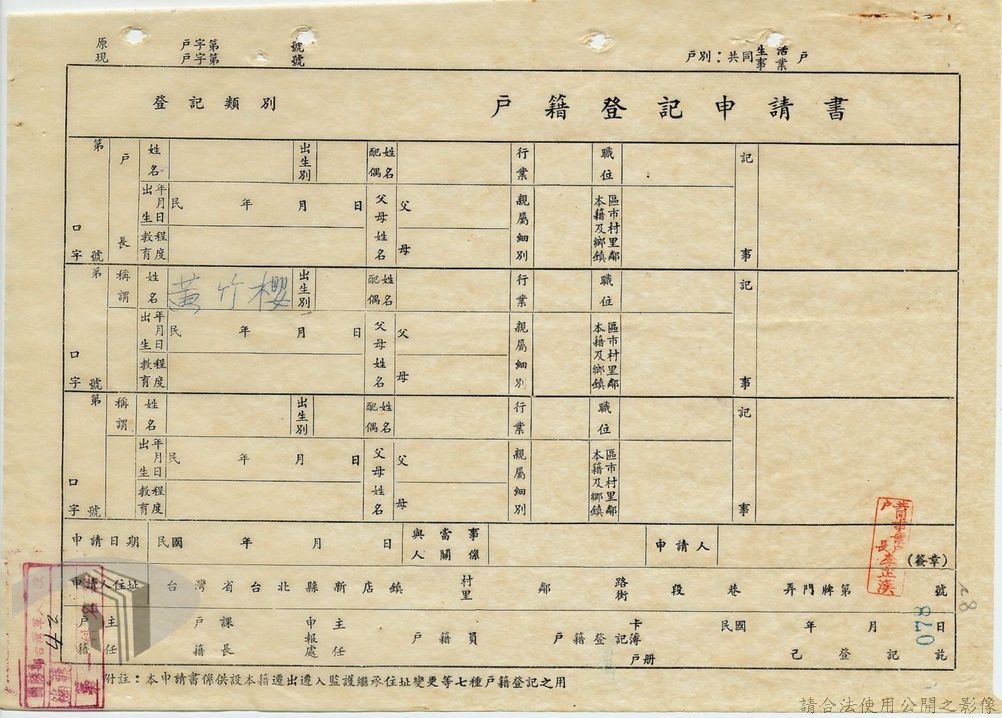 原 戶字第 號
現 戶字第 號
戶別：共同生活事業戶
登記類別
戶籍登記申請書
第 口字 號
戶長 姓名 出生別 配偶姓名 行業 職位 記事
出生年月日 民 年 月 日 父母姓名 父 母 親屬細別 本籍及鄉鎮區市村里鄰
教育程度
第 口字 號
稱謂 姓名 黃竹櫻 出生別 配偶姓名 行業 職位 記事
出生年月日 民 年 月 日 父母姓名 父 母 親屬細別 本籍及鄉鎮區市村里鄰
教育程度
第 口字 號
稱謂 姓名 出生別 配偶姓名 行業 職位 記事
出生年月日 民 年 月 日 父母姓名 父 母 親屬細別 本籍及鄉鎮區市村里鄰
教育程度
申請日期 民國 年 月 日 與當事人關係 申請人 (簽章)
共同事業戶
戶長李正漢
申請人住址 台灣省台北縣新店鎮 村里 鄰 路街 段 巷 弄門牌第 號
28
戶籍主任 戶籍課長 申報處主任 戶籍員 戶籍登記卡簿戶冊 民國 年 月 日
己登記訖
078
42
附註：本申請書係供設本籍遷出遷入監護繼承住址變更等七種戶籍登記之用
請合法使用公開之影像